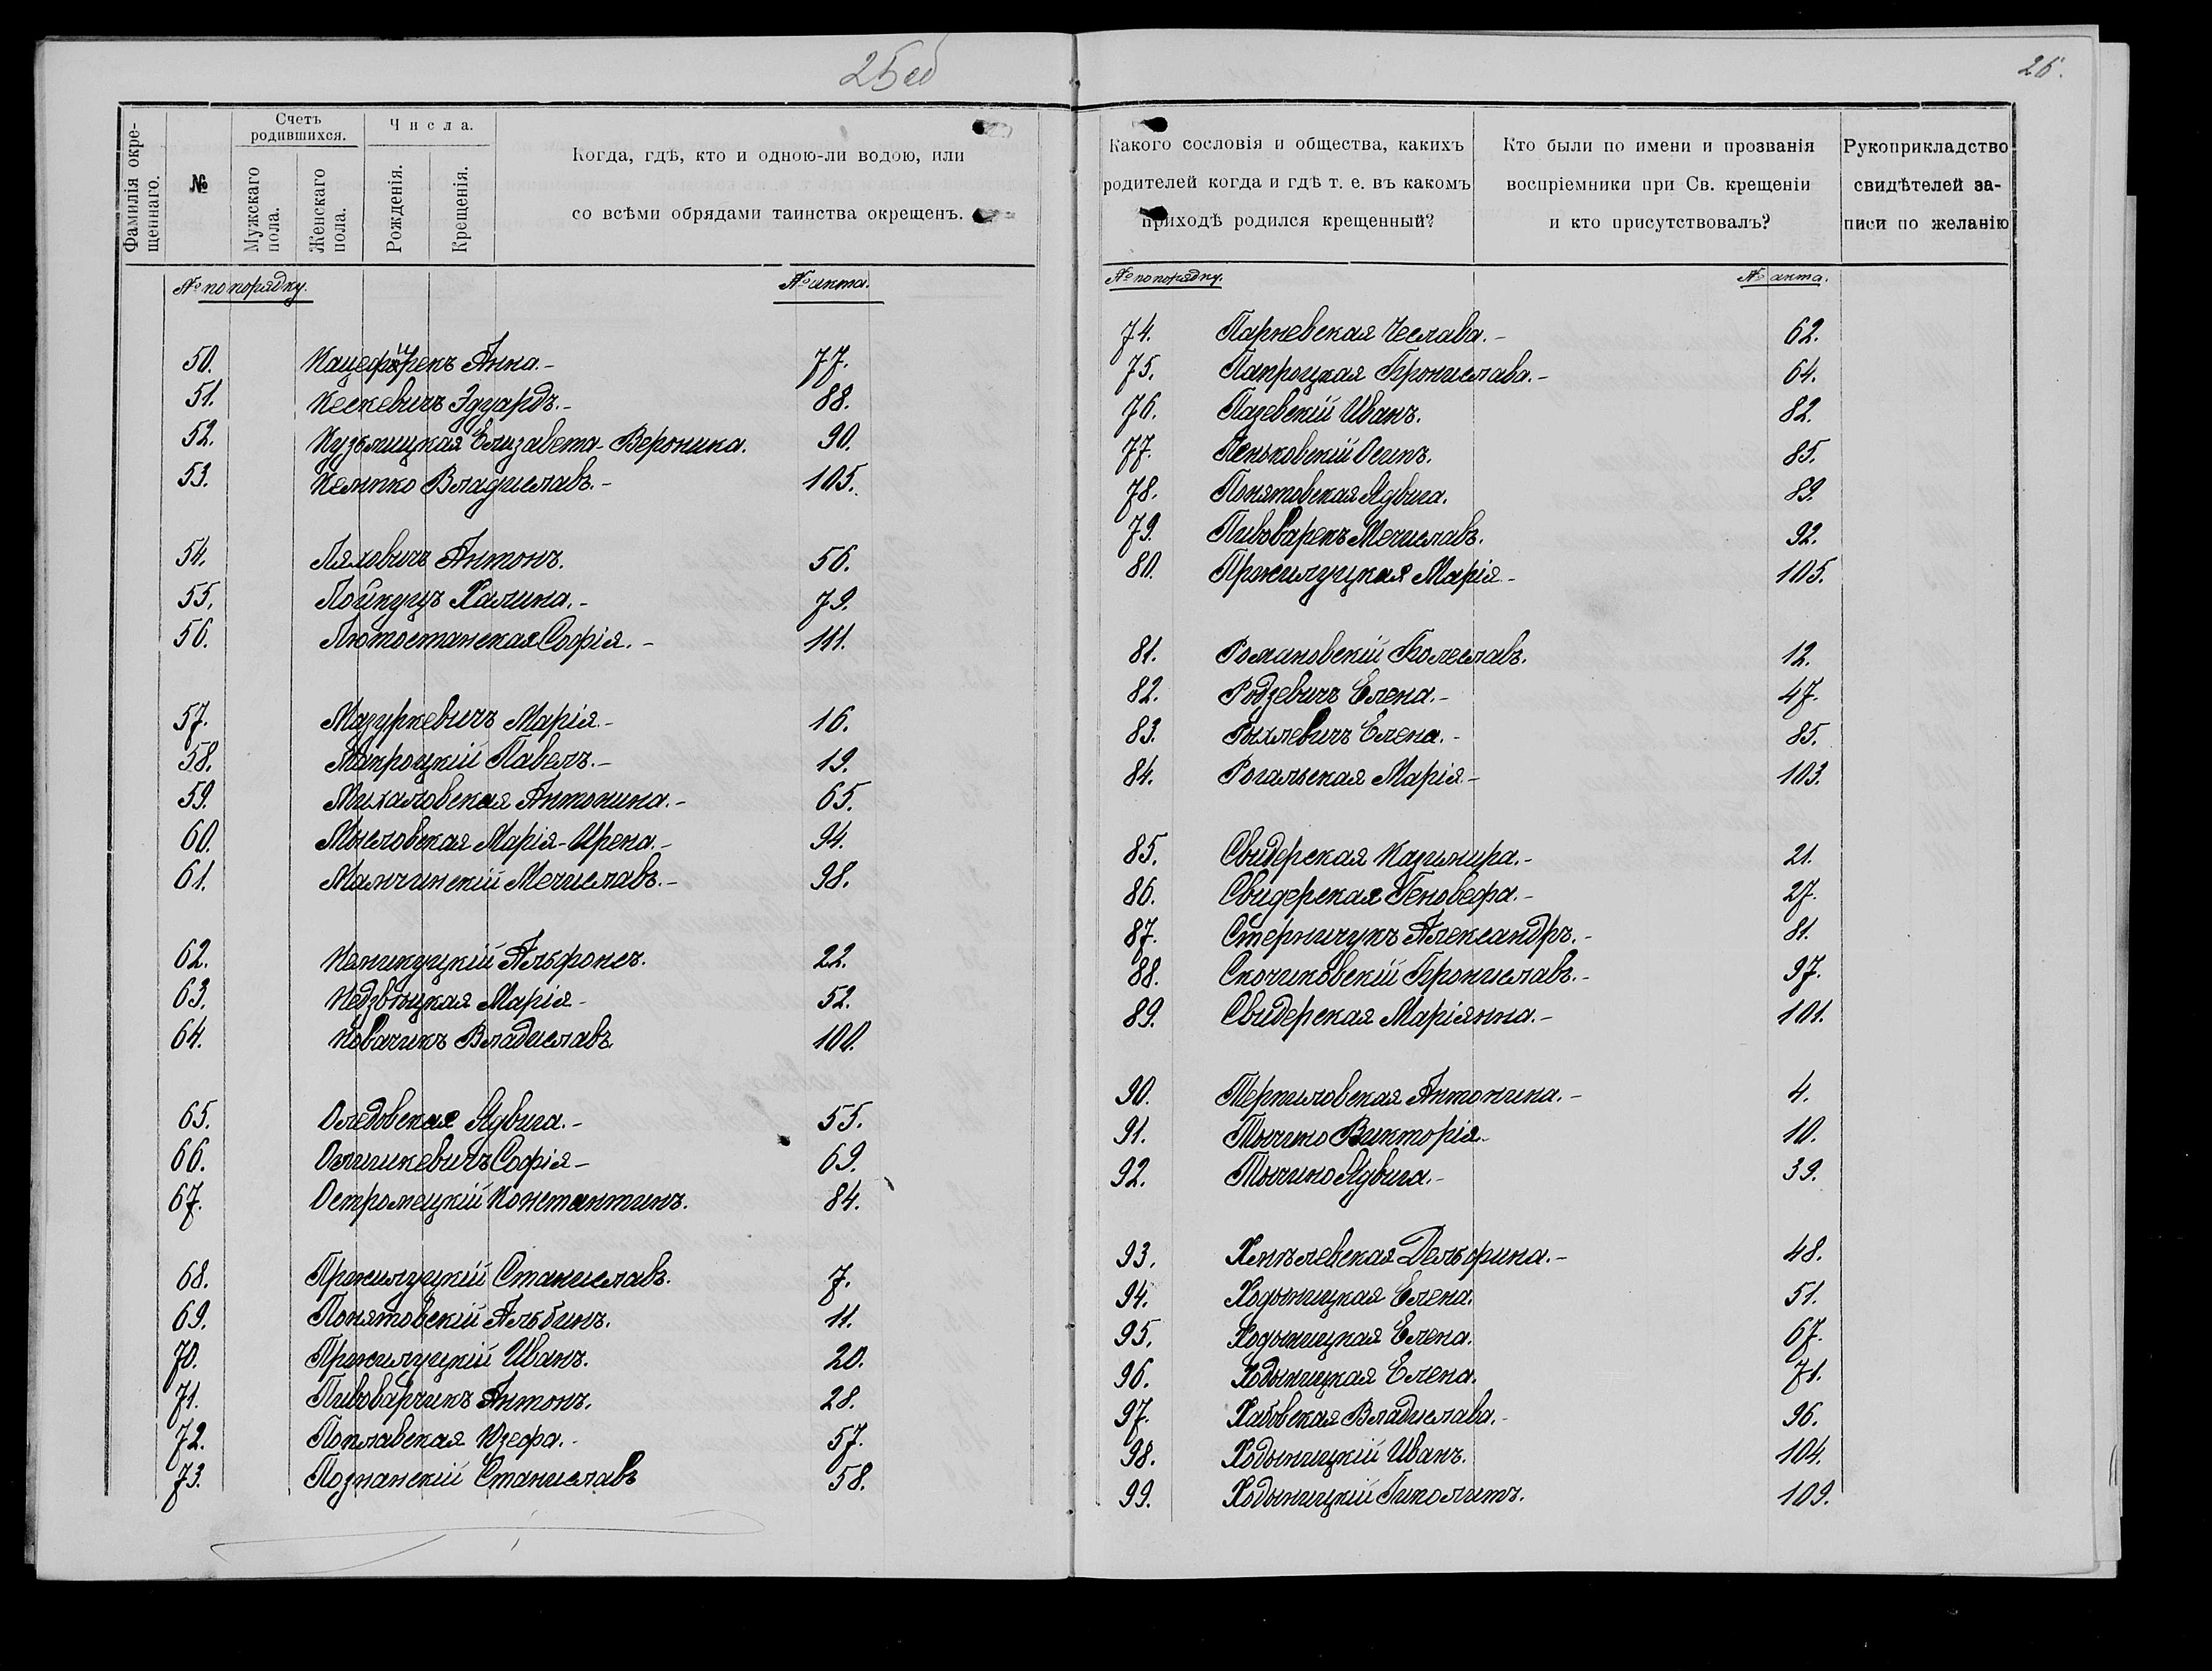 25об
26.
Фамилія окрещеннаго.
№
Счетъ родившихся.
Мужскаго пола.
Женскаго пола.
Числа.
Рожденія.
Крещенія.
Когда, гдѣ, кто и одною-ли водою, или
со всѣми обрядами таинства окрещенъ.
№ по порядку. № акта.
50. Анна.- 77.
51. Кескевичъ Эдуардъ.- 88.
52. Кузьмицкая Елизавета-Вероника. 90.
53. Владиславъ.- 105.
54. Ляховичъ Антонъ. 56.
55. Лойкуцъ Халина.- 79.
56. Лютостанская Софія.- 111.
57. Мазуркевичъ Марія.- 16.
58. Макроцкій Павелъ.- 19.
59. Михаловская Антонина.- 65.
60. Мысловская Марія-Ирена.- 94.
61. Мамчинскій Мечиславъ.- 98.
62. Альфонсъ. 22.
63. Недзвѣцкая Марія- 52.
64. Новачикъ Владиславъ. 100.
65. Оледовская Ядвига.- 55.
66. Олишкевичъ Софія- 69.
67. Остромецкій Константинъ. 84.
68. Прокилуцкій Станиславъ. 7.
69. Понятовскій Альбинъ. 11.
70. Прокилуцкій Иванъ. 20.
71. Пивоварчикъ Антонъ. 28.
72. Поплавская Юзефа.- 57.
73. Познанскій Станиславъ 58.
Какого сословія и общества, какихъ
родителей когда и гдѣ т. е. въ какомъ
приходѣ родился крещенный?
Кто были по имени и прозванія
воспріемники при Св. крещеніи
и кто присутствовалъ?
Рукоприкладство
свидѣтелей за-
писи по желанію
№ по порядку. № акта.
74. Парневская Чеслава.- 62.
75. Папроцкая Бронислава.- 64.
76. Пазевскій Иванъ. 82.
77. Пеньковскій Осипъ. 85.
78. Понятовская Ядвига. 89.
79. Пивоварекъ Мечиславъ. 92.
80. Прокилуцкая Марія- 105.
81. Романовскій Болеславъ. 12.
82. Родзевичъ Елена.- 47.
83. Рыхлевичъ Елена.- 85.
84. Рогальская Марія- 103.
85. Свидерская Казимира.- 21.
86. Свидерская Геновефа.- 27.
87. Стерничукъ Александръ.- 81.
88. Скочиковскій Брониславъ.- 97.
89. Свидерская Маріянна.- 101.
90. Терпиловская Антонина.- 4.
91. Тычино Викторія- 10.
92. Тычино Ядвига.- 39.
93. Хмѣлевская Дельфина.- 48.
94. Ходыницкая Елена. 51.
95. Ходыницкая Елена. 67.
96. Ходыницкая Елена. 71.
97. Хабовская Владислава.- 96.
98. Ходыницкій Иванъ. 104.
99. Ходыницкій Гиполитъ. 109.